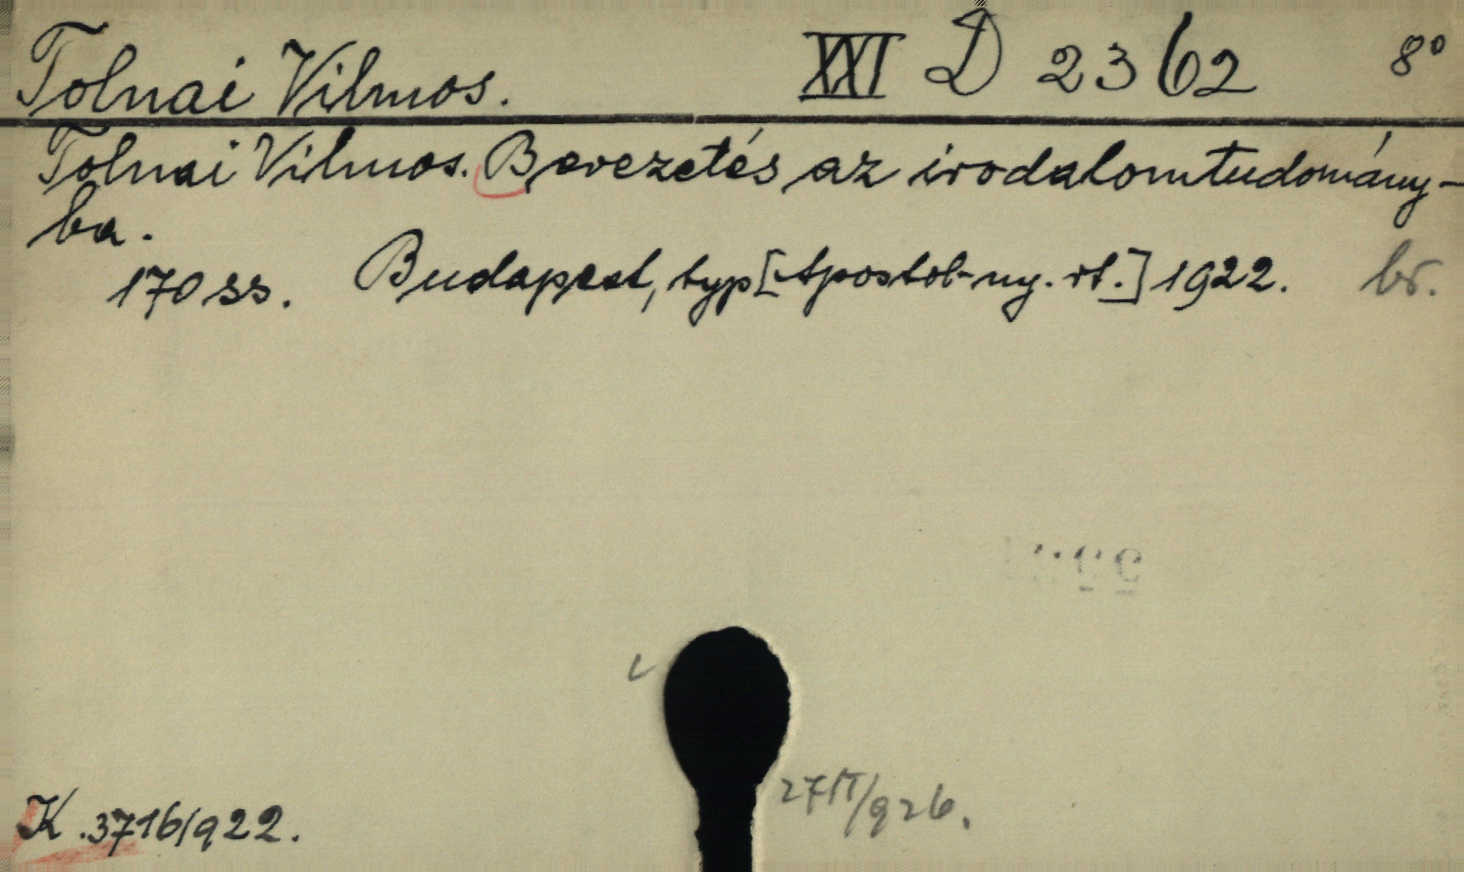 Tolnai Vilmos. XXI D 2362 8°
Tolnai Vilmos. Bevezetés az irodalomtudomány-
ba.
170 ss. Budapest, typ[Apostol-ny. rt.] 1922. br.
K. 3716/922.